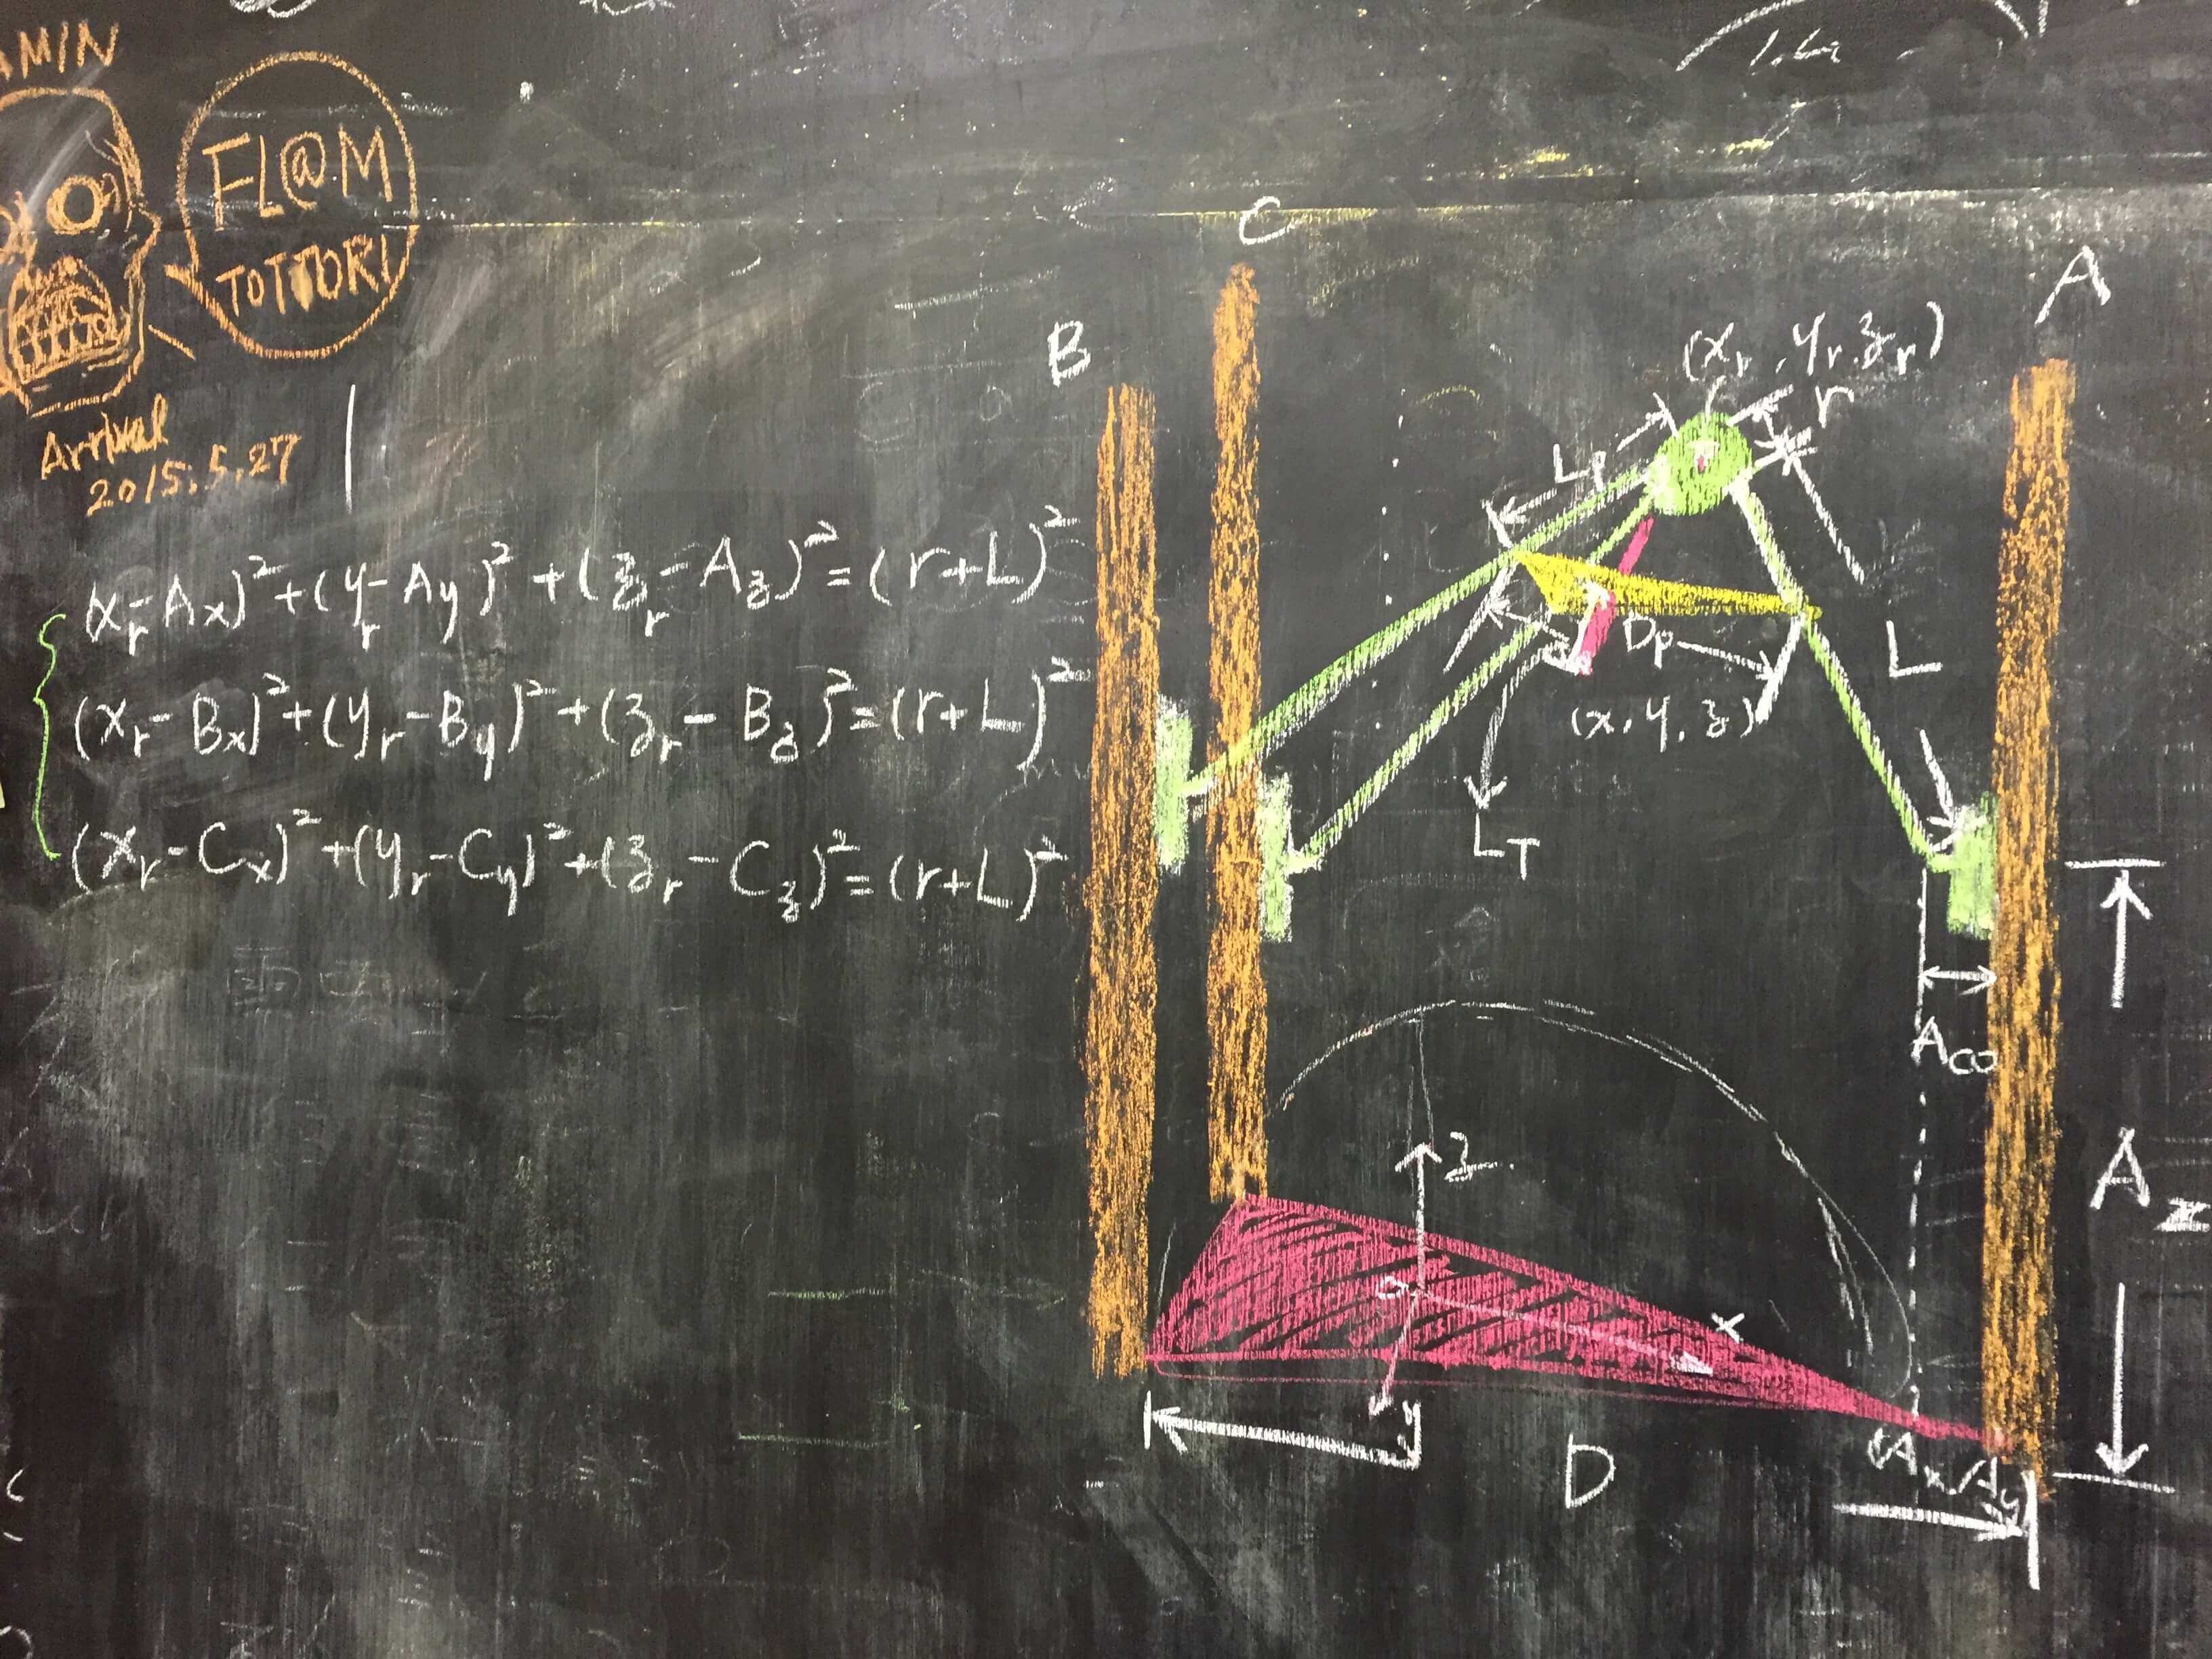 AMIN
FL@M
TOTTORI
Arrival
2015.5.27
(xr-Ax)²+(yr-Ay)²+(zr-Az)²=(r+L)²
(xr-Bx)²+(yr-By)²+(zr-Bz)²=(r+L)²
(xr-Cx)²+(yr-Cy)²+(zr-Cz)²=(r+L)²
C
B
A
(xr,yr,zr)
r
Lp
L
Dp
(x,y,z)
LT
Aco
Az
z
o
x
y
D
(Ax,Ay